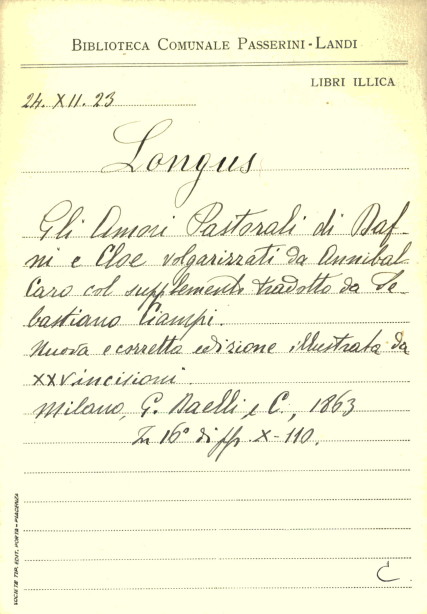 BIBLIOTECA COMUNALE PASSERINI-LANDI
LIBRI ILLICA
24. XII. 23
Longus
Gli Amori Pastorali di Daf-
ni e Cloe volgarizzati da Annibal
Caro col supplemento tradotto da Se-
bastiano Ciampi.
Nuova e corretta edizione illustrata da
XXV incisioni.
Milano, G. Daelli e C., 1863
In 16° di pp. X-110.
C
SOCIETÀ TIP. EDIT. PORTA - PIACENZA